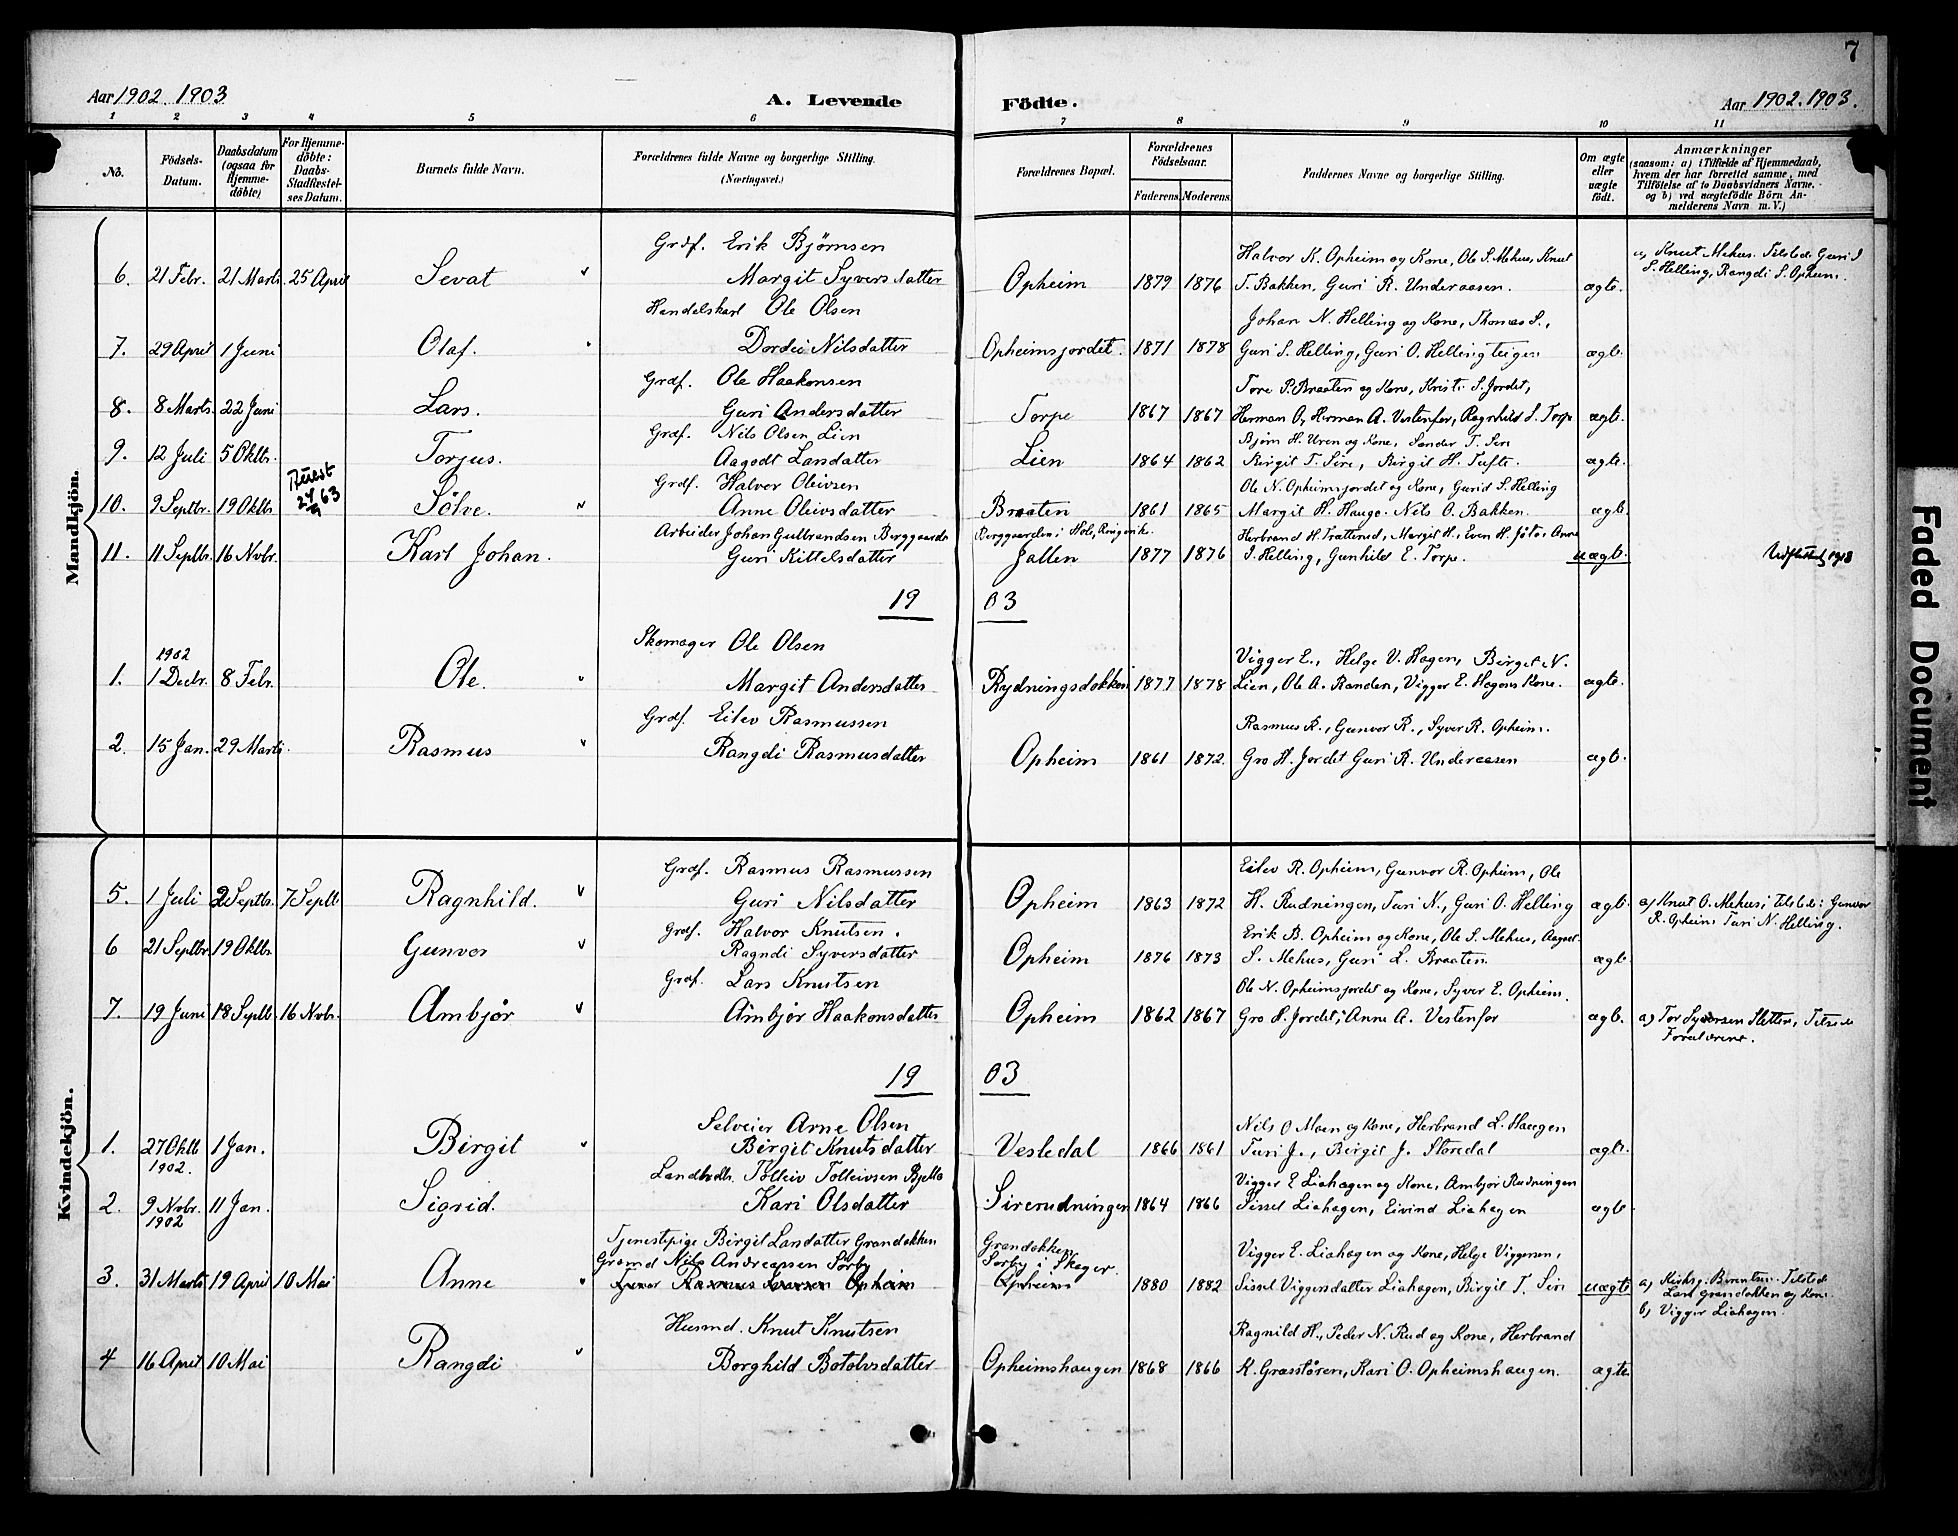 7
Aar 1902. 1903
A. Levende Födte.
Aar 1902. 1903.
1 2 3 4 5 6 7 8 9 10 11
No.
Födsels-Datum.
Daabsdatum (ogsaa for Hjemme-döbte)
For Hjemme-döbte: Daabs-Stadfæstel-ses Datum.
Barnets fulde Navn.
Forældrenes fulde Navne og borgerlige Stilling.
(Næringsvei.)
Forældrenes Bopæl.
Forældrenes Födselsaar.
Faderens Moderens
Faddernes Navne og borgerlig Stilling.
Om ægte eller uægte födt.
Anmærkninger
(saasom: a) i Tilfælde af Hjemmedaab,
hvem der har forrettet samme, med
Tilföielse af to Daabsvidners Navne,
og b) ved uægtefödte Börn An-
melderens Navn m. V.)
Mandkjön.
Grdf. Erik Bjørnsen Halvor K. Opheim og Kone, Ole S. Mehus, Knut a, Knut Mehus. Tilstede Guri
6. 21 Febr. 21 Marts. 25 April Sevat Margit Syversdatter Opheim 1879 1876 T. Bakken, Guri R. Underaasen. ægte. S. Helling, Rangdi S. Opheim.
Handelskarl Ole Olsen Johan N. Helling og Kone, Thomas S.,
7. 29 April 1 Juni Olaf. Dordei Nilsdatter Opheimsjordet. 1871 1878 Guri S. Helling, Guri O. Hellingteigen ægt.
Grdf. Ole Haakonsen Tore P. Braaten og Kone, Kristi S. Jordet,
8. 8 Marts. 22 Juni Lars. Guri Andersdatter Torpe 1867 1867 Herman O, Herman A. Vestenfor, Ragnhild S. Torpe ægt.
Grdf. Nils Olsen Lien Bjørn H. Uren og Kone, Sander T. Sire
9. 12 Juli 5 Oktbr. Torjus. Aagodt Larsdatter Lien 1864 1862 Birgit T. Sire, Birgit H. Tufte. ægte.
Grdf. Halvor Oleivsen Ole N. Opheimsjordet og Kone, Gurid S. Helling
10. 9 Septbr. 19 Oktbr 63 Sölve. Anne Oleivsdatter Braaten 1861 1865 Margit H. Haugo. Nils O. Bakken. ægt.
Arbeider Johan Gulbrandsen Berggaarde Berggaarden i Hole, Ringerik. Herbrand H. Trætterud, Margit H., Even H. Jöto, Anne
11. 11 Septbr. 16 Novbr. Karl Johan. Guri Kittelsdatter Jallen 1877 1876 I. Helling, Gunhild E. Torpe. uægt. Udflyttet 1918
19 03
1902 Skomager Ole Olsen Vigger E., Helge V. Hagen, Birget N.
1. 1 Decbr. 8 Febr. Ole. Margit Andersdatter Rydningsdokken 1877 1878 Lien, Ole A. Randen, Vigger E. Hagens Kone. ægte.
Grdf. Eilev Rasmussen Rasmus R., Gunvor R., Syver R. Opheim.
2. 15 Jan. 29 Marts. Rasmus Rangdi Rasmusdatter Opheim 1861 1872. Gro H. Jordet Guri R. Underaasen ægt.
Kvindekjön.
Grdf. Rasmus Rasmussen Eilev R. Opheim, Gunvor R. Opheim, Ole
5. 1 Juli 2 Septbr. 7 Septbr Ragnhild. Guri Nilsdatter Opheim 1863 1872 H. Rudningen, Turi N., Guri O. Helling ægt. a) Knut O. Mehus; Tilstede: Gunvor
R. Opheim Turi N. Helling.
Grdf. Halvor Knutsen. Erik B. Opheim og Kone, Ole S. Mehus, Aagot
6 21 Septbr 19 Oktbr. Gunvor Ragndi Syversdatter Opheim 1876 1873 S. Mehus, Guri L. Braaten. ægt.
Grdf. Lars Knutsen Ole N. Opheimsjordet og Kone, Syver E. Opheim.
7. 19 Juni 18 Septb 16 Novbr. Ambjør Ambjør Haakonsdatter Opheim 1862 1867 Gro H. Jordet, Anne A. Vestenfor ægt. a) Tor Syversen Sletten, Tilstede
Forældrene.
19 03
Selveier Arne Olsen Nils O Moen og Kone, Herbrand L. Haugen
1. 27 Oktb 1902. 1 Jan. Birgit Birgit Knutsdatter Vesledal 1866 1861 Turi J., Birgit J. Storedal ægt.
Landhdlr. Tolleiv Tolleivsen Vigger E Liahagen og Kone, Ambjør Rudningen
2. 9 Novbr. 1902 11 Jan. Sigrid. Kari Olsdatter Sirerudningen 1864 1866 Sissel Liahagen, Eivind Liahagen ægt.
Tjenestepige Birgit Larsdatter Grøndokken Grøndokken
Grdmd Nils Andreassen Sørby Sørby i Skoger. Vigger E. Liahagen og Kone, Helge Viggersen,
3. 31 Marts 19 April 10 Mai Anne Rasmus Opheim Opheim 1880 1882 Sissel Viggersdatter Liahagen, Birgit T. Sire uægte a) Kirksg. Berentsen. Tilstede
Lars Grøndokken og Kone.
b) Vigger Liahagen.
Husmd. Knut Knutsen Ragnild H., Peder N. Rud og Kone, Herbrand
4 16 April 10 Mai Rangdi Borghild Botolvsdatter Opheimshaugen 1868 1866 K. Græstören, Kari O. Opheimshaugen. ægte
Faded Document